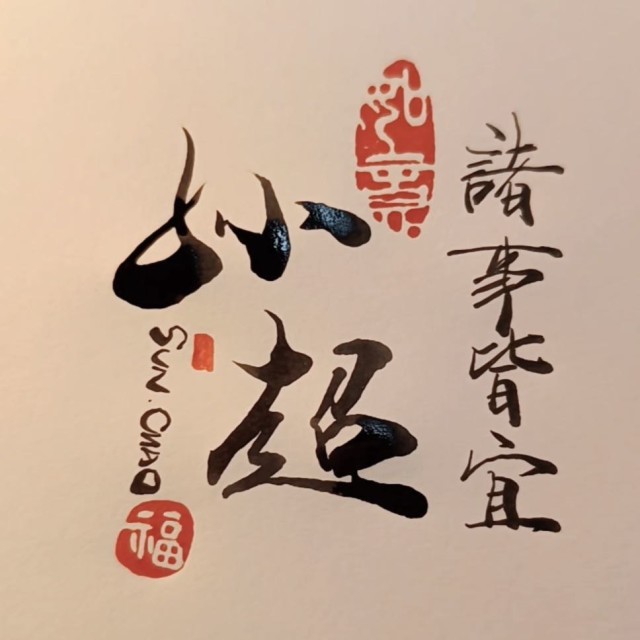 諸事皆宜
孙超
SUN.CHAO
福